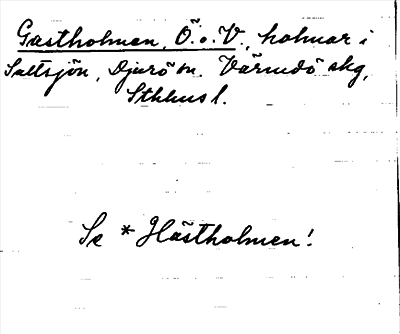 Gastholmen, Ö. o. V., holmar i
Saltsjön, Djurö sn. Värmdö skg,
Sthlms l.
Se *Hästholmen!